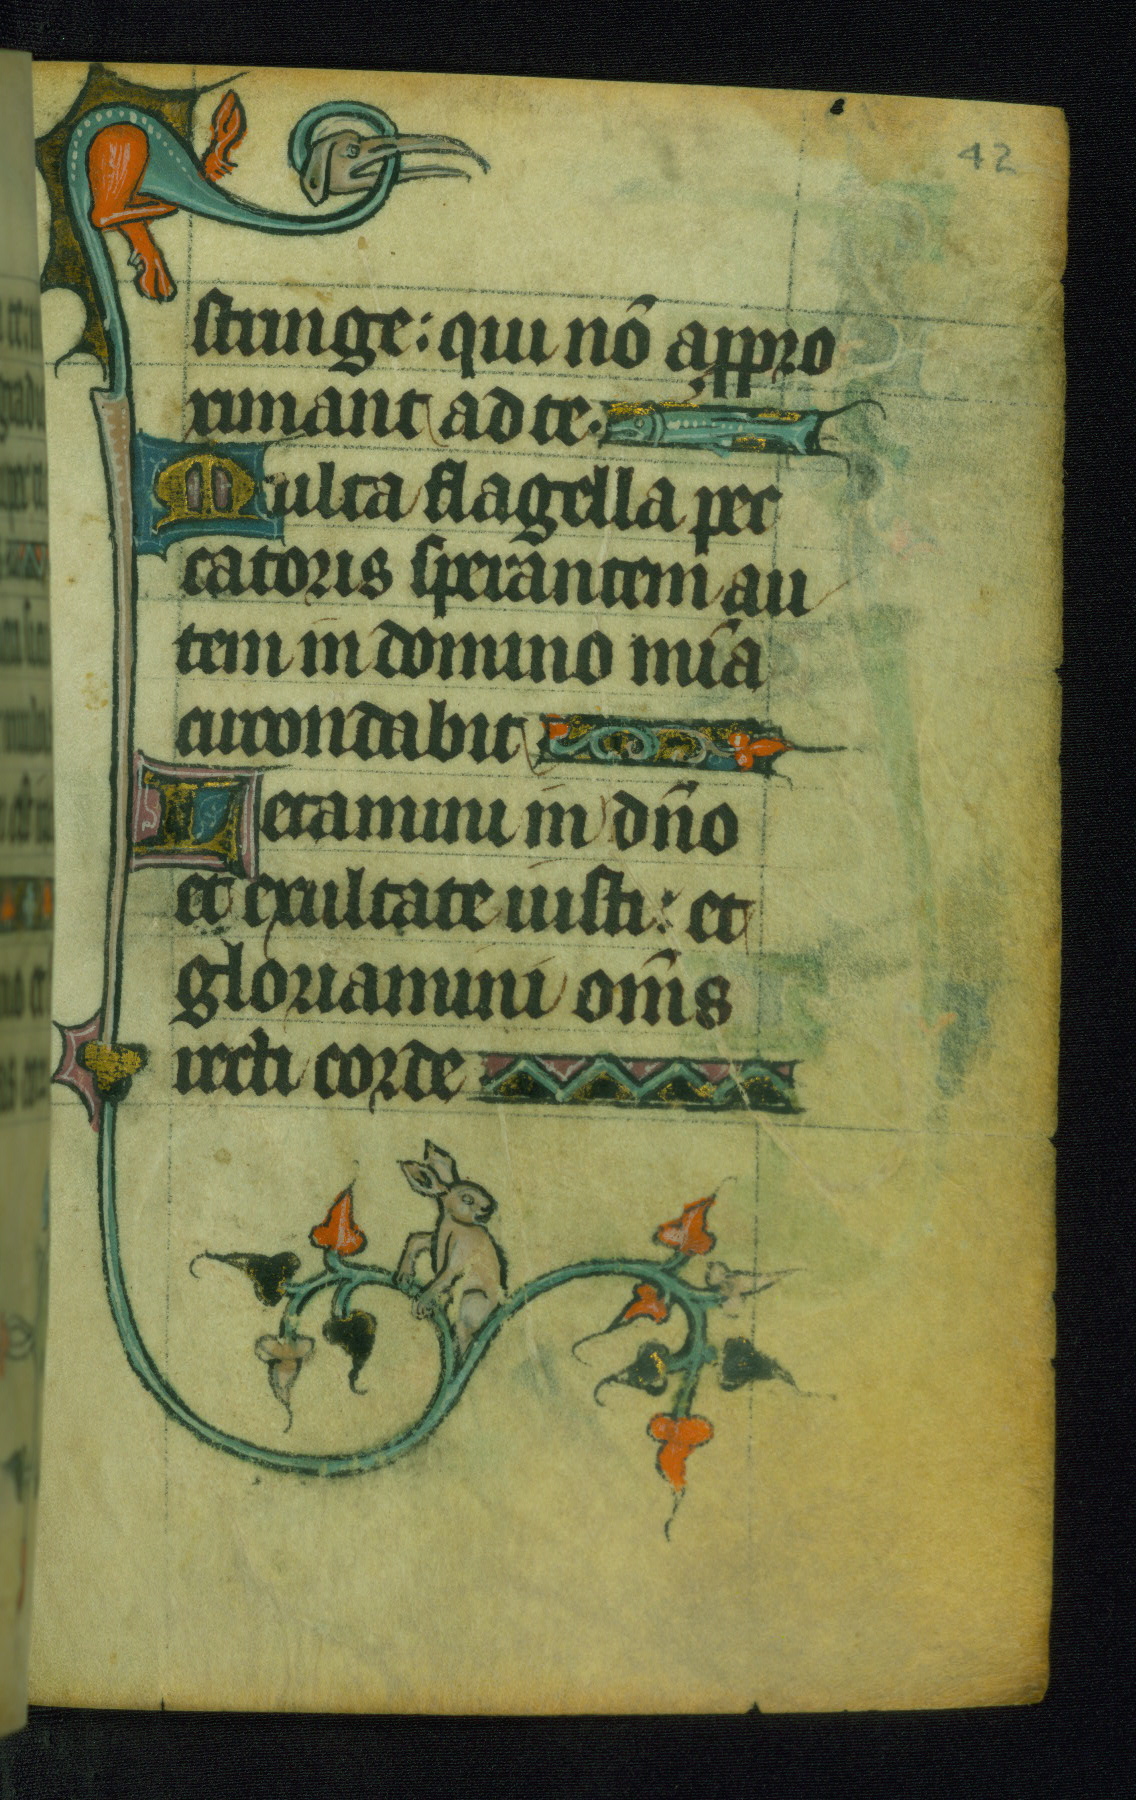 42
stringe: qui nō appro
ximant ad te.
Multa flagella pec
catoris sperantem au
tem in domino mīa
circondabit
Letamini in dn̄o
et exultate iusti: et
gloriamini om̄s
recti corde